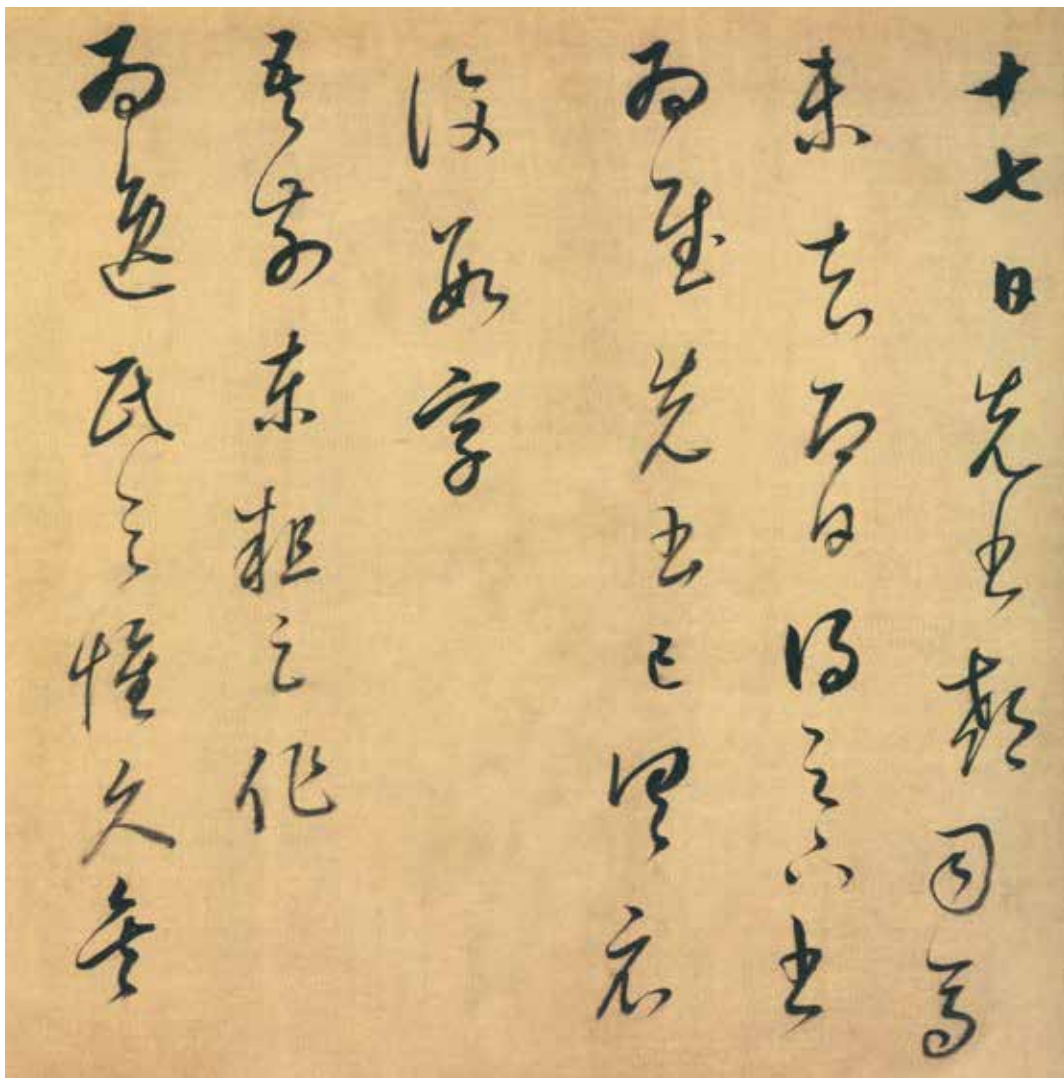 十七日先書郗司馬
未去即日得足下書
為慰先書已具示
復數字
吾前東粗足作
為逸民之懷久矣